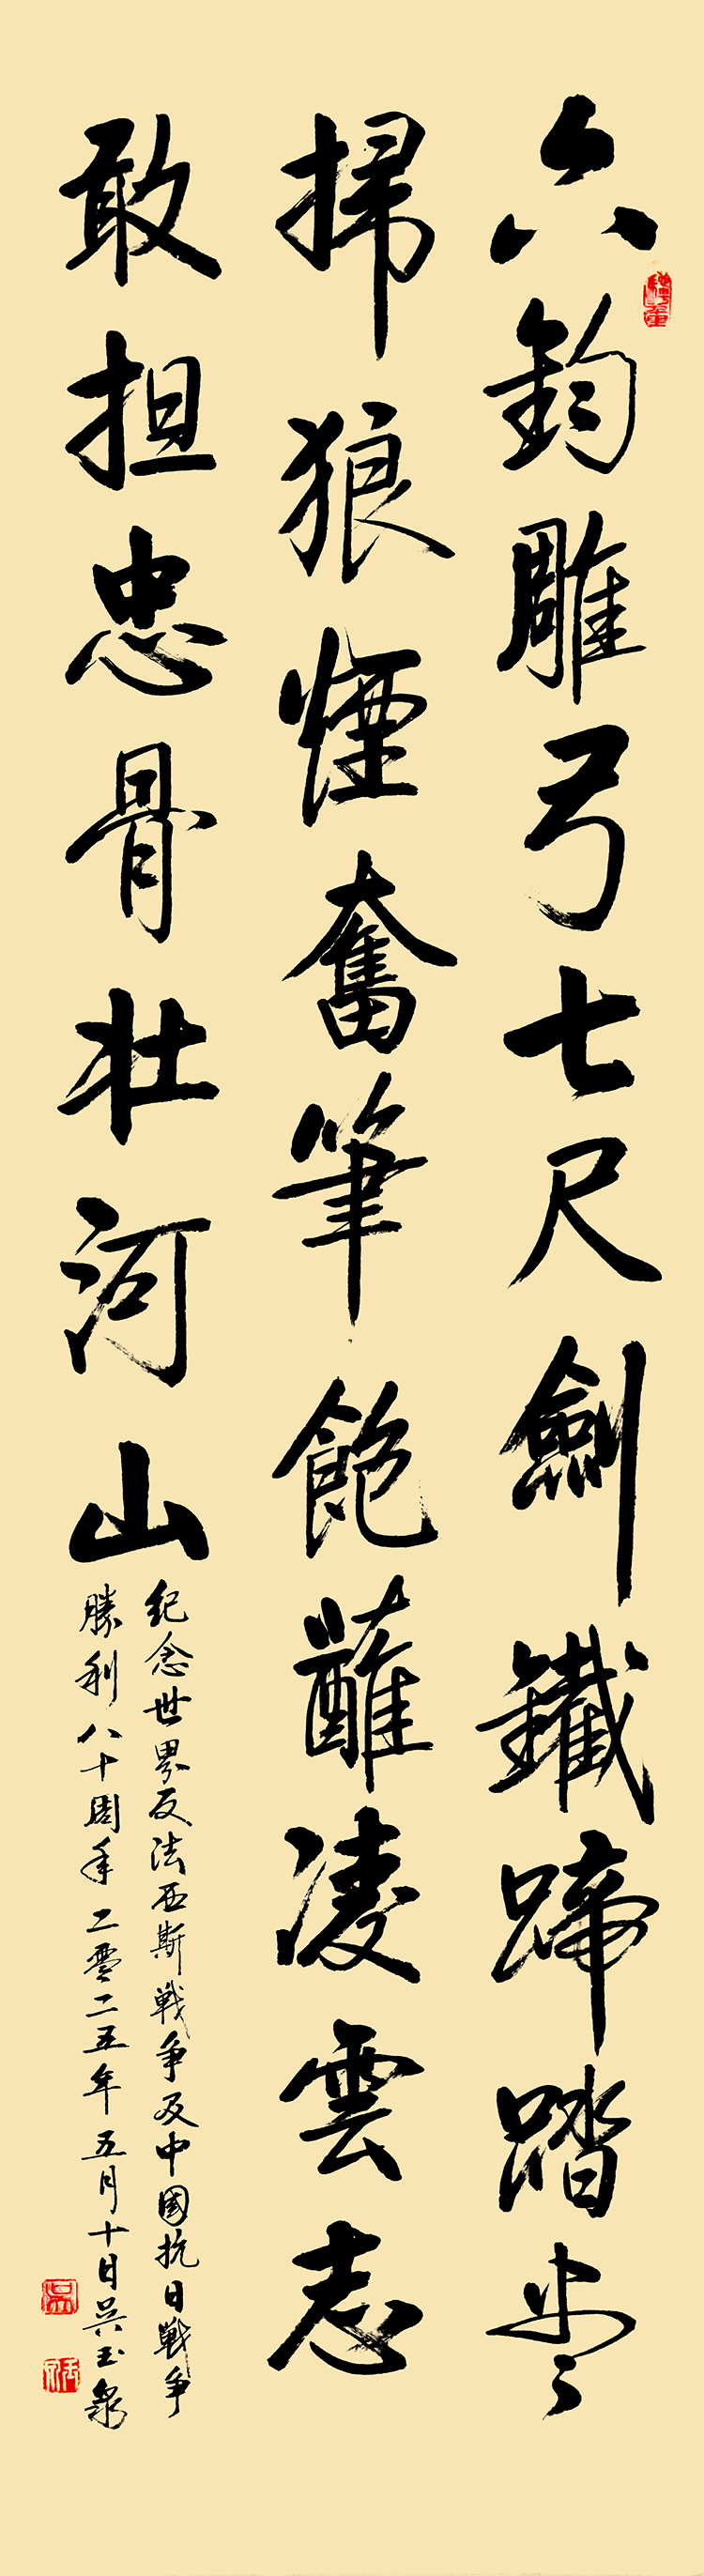 六鈞雕弓七尺劍鐵蹄踏盡
掃狼煙奮筆飽蘸凌雲志
敢担忠骨壮河山
纪念世界反法西斯戰争及中國抗日戰争
勝利八十周年二零二五年五月十日吴玉泉